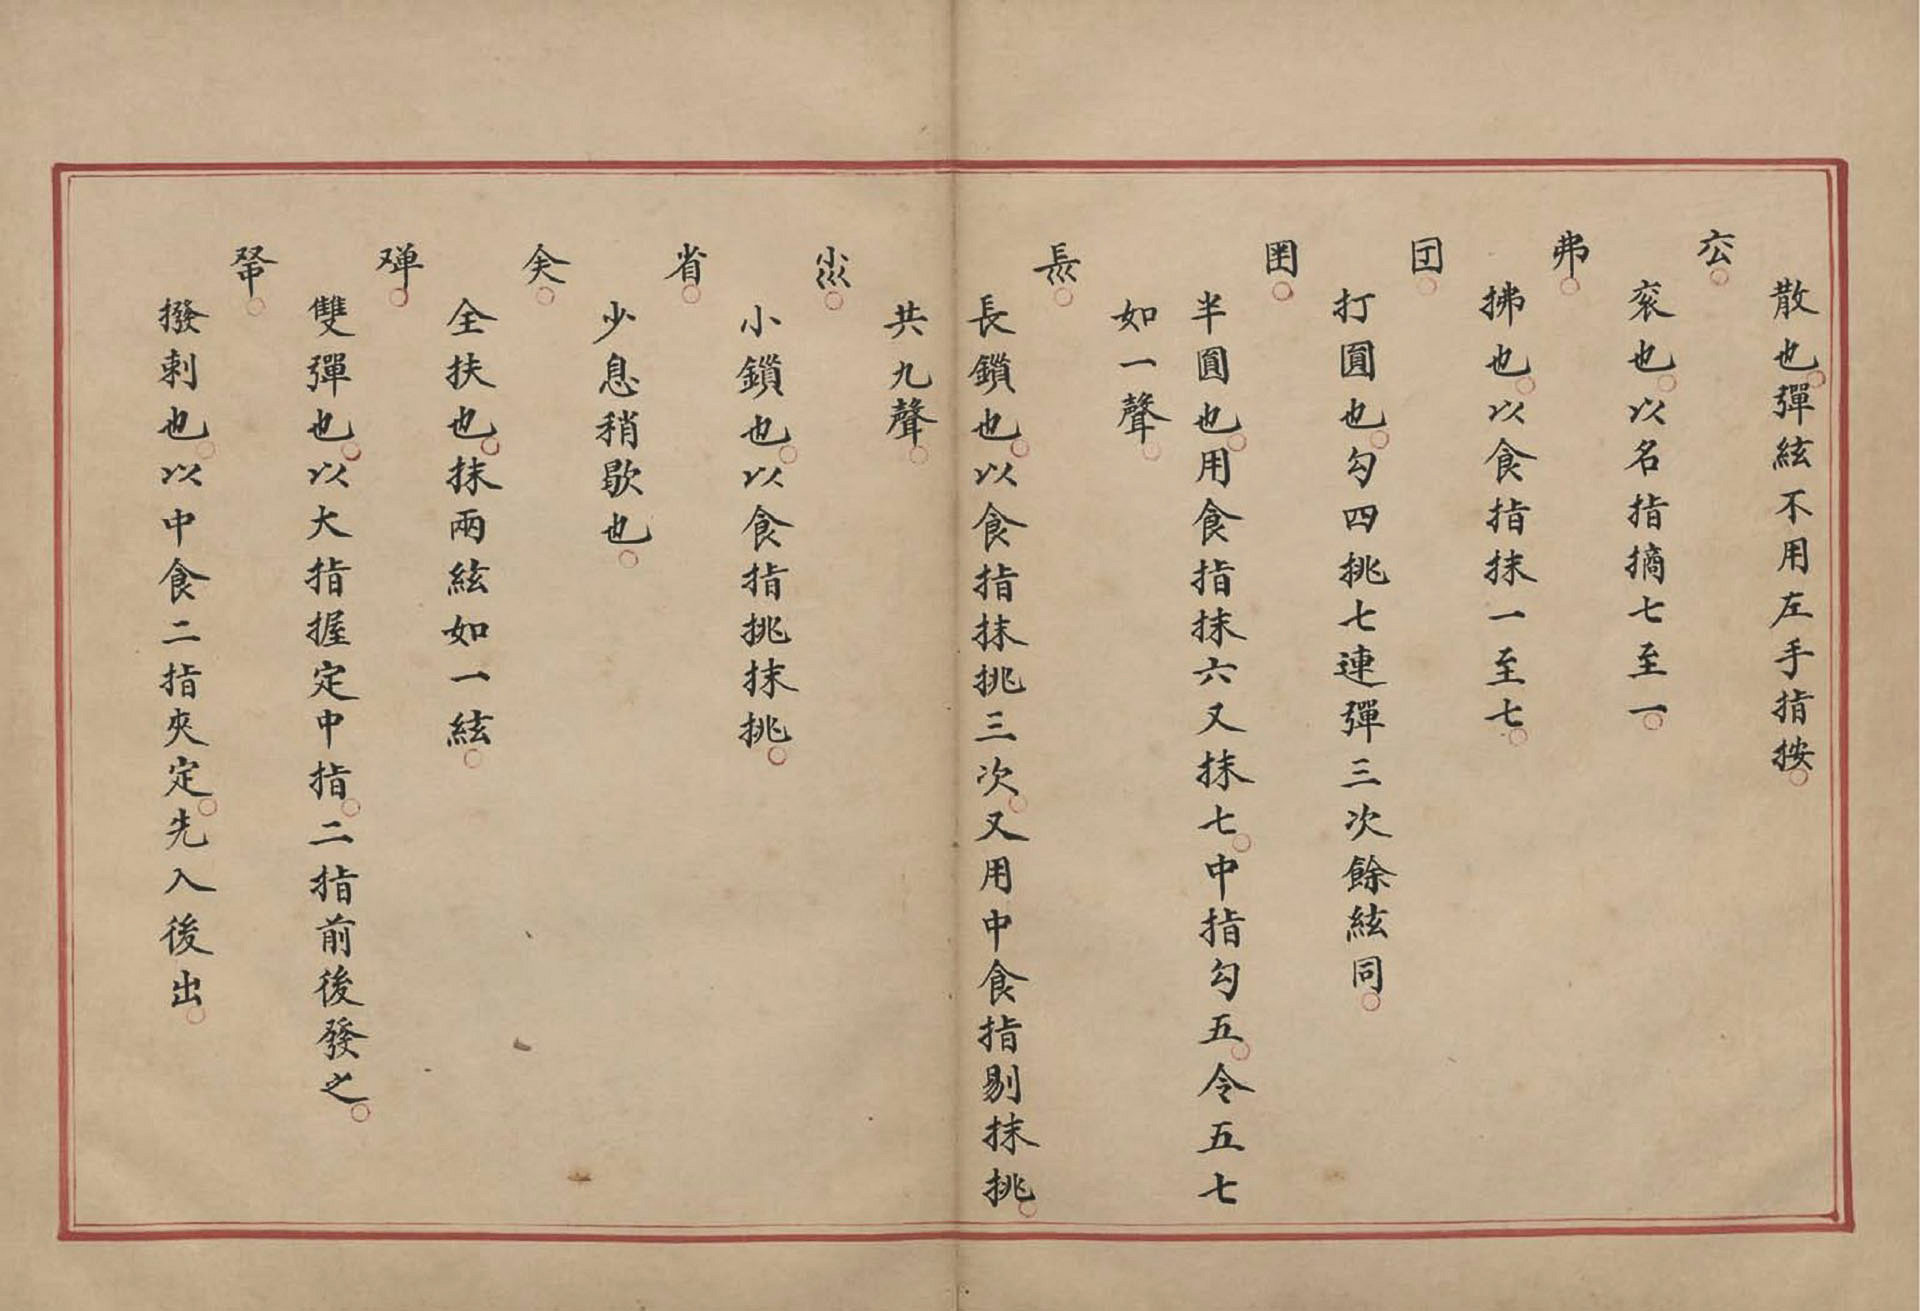 散也彈絃不用左手指按
厷
衮也以名指摘七至一
弗
拂也以食指抹一至七
打圓也勾四挑七連彈三次餘絃同
半圓也用食指抹六又抹七中指勾五令五七
如一聲
長鎖也以食指抹挑三次又用中食指剔抹挑
共九聲
小鎖也以食指挑抹挑
省
少息稍歇也
全扶也抹兩絃如一絃
雙彈也以大指握定中指二指前後發之
撥剌也以中食二指夾定先入後出